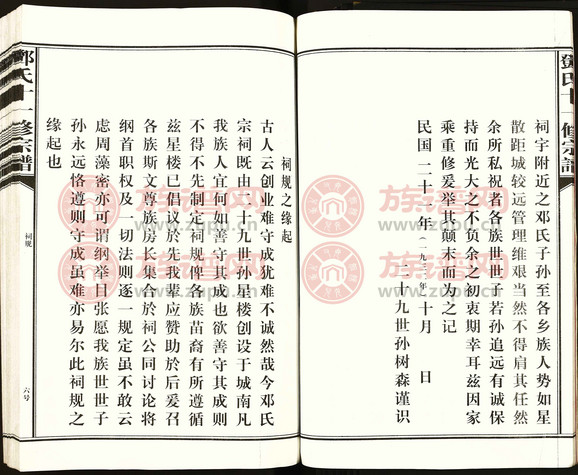 鄧氏十一修宗譜
祠宇附近之邓氏子孙至各乡族人势如星
散距城较远管理维艰当然不得肩其任然
余所私祝者各族世世子若孙追远有诚保
持而光大之不负余之初衷期幸耳兹因家
乘重修爰举其颠末而为之记
民国二十一年(一九三二年)十月 日
二十九世孙树森谨识
祠规之缘起
古人云创业难守成犹难不诚然哉今邓氏
宗祠既由二十九世孙星楼创设于城南凡
我族人宜何如善守其成也欲善守其成则
不得不先制定祠规俾各族苗裔有所遵循
兹星楼已倡议於先我辈应赞助於后爰召
各族斯文尊族房长集合於祠公同讨论将
纲首职权及一切法则逐一规定虽不敢云
虑周藻密亦可谓纲举目张愿我族世世子
孙永远恪遵则守成虽难亦易尔此祠规之
缘起也
鄧氏十一修宗譜
祠规
六号
族谱网
www.zupu.cn
族谱网
www.zupu.cn
族谱网
www.zupu.cn
族谱网
www.zupu.cn